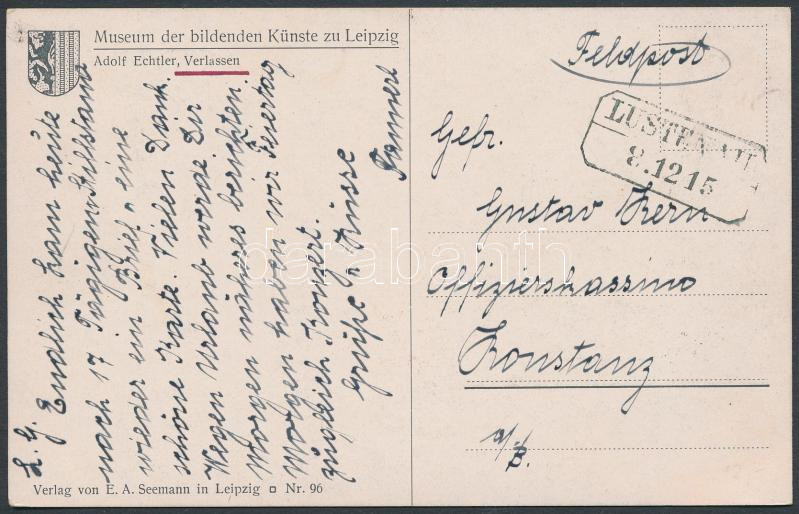 Museum der bildenden Künste zu Leipzig
Adolf Echtler, Verlassen
L. G. Endlich kam heute
nach 17 Tägigen Stillstand
wieder ein Brief u. eine
schöne Karte. Vielen Dank.
Wegen Urlaub werde Dir
Morgen näheres berichten.
Morgen haben wir Feiertag
zugleich Konzert.
Grüße u. Küsse
Verlag von E. A. Seemann in Leipzig ¤ Nr. 96
Feldpost
LUSTENAU
8.12 15
Gefr.
Gustav Kern
Offizierskassino
Konstanz
a/B.
darabanth